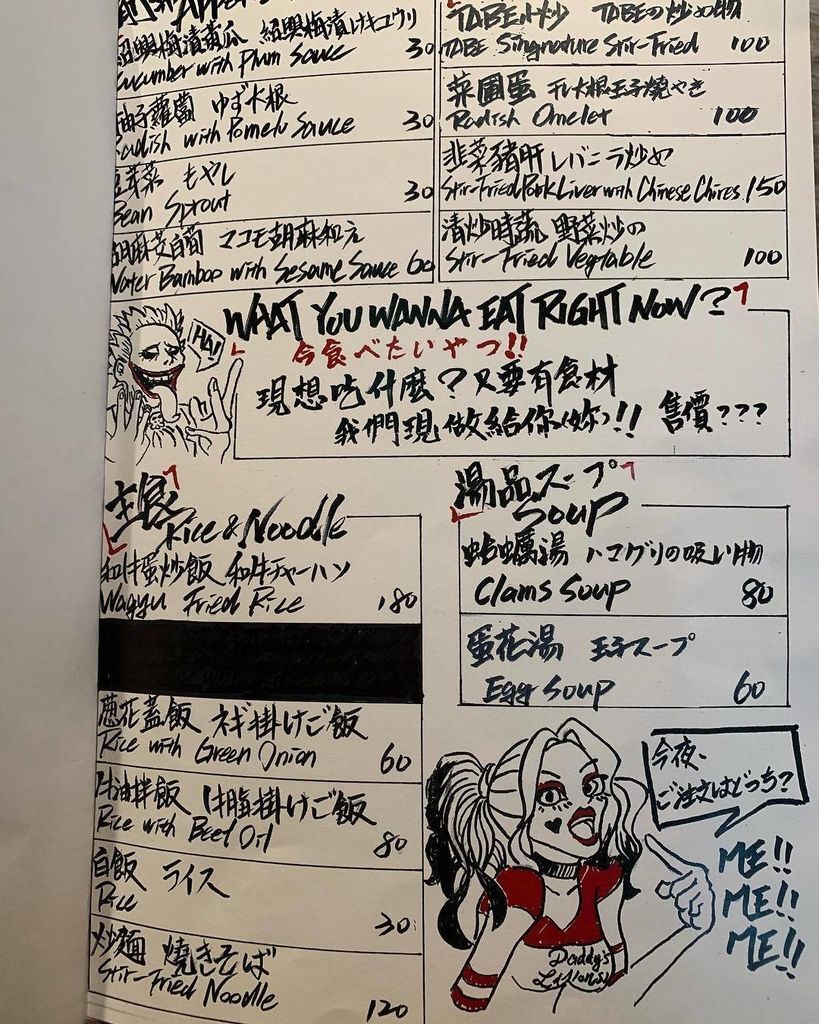 紹興梅漬黃瓜 紹興梅漬けキュウリ
Cucumber with Plum Sauce 30
柚子蘿蔔 ゆず大根
Radish with Pomelo Sauce 30
豆芽菜 もやし
Bean Sprout 30
胡麻茭白筍 マコモ胡麻和え
Water Bamboo with Sesame Sauce 60
TABE小炒 TABEの炒め物
TABE Singnature Stir-Fried 100
菜圃蛋 干し大根玉子焼やき
Radish Omelet 100
韭菜豬肝 レバニラ炒め
Stir-Fried Pork Liver with Chinese Chires 150
清炒時蔬 野菜炒の
Stir-Fried Vegtable 100
WHAT YOU WANNA EAT RIGHT NOW?
今食べたいやつ!!
現想吃什麼?只要有食材
我們現做給你(妳)!! 售價???
HA!
主食
Rice & Noodle
和牛蛋炒飯 和牛チャーハン
Wagyu Fried Rice 180
蔥花蓋飯 ネギ掛けご飯
Rice with Green Onion 60
牛油拌飯 牛脂掛けご飯
Rice with Beef Oil 80
白飯 ライス
Rice 30
炒麵 燒きそば
Stir-Fried Noodle 120
湯品 スープ
Soup
蛤蠣湯 ハマグリの吸い物
Clams Soup 80
蛋花湯 玉子スープ
Egg Soup 60
今夜、
ご注文はどっち?
ME!!
ME!!
ME!!
Daddy's